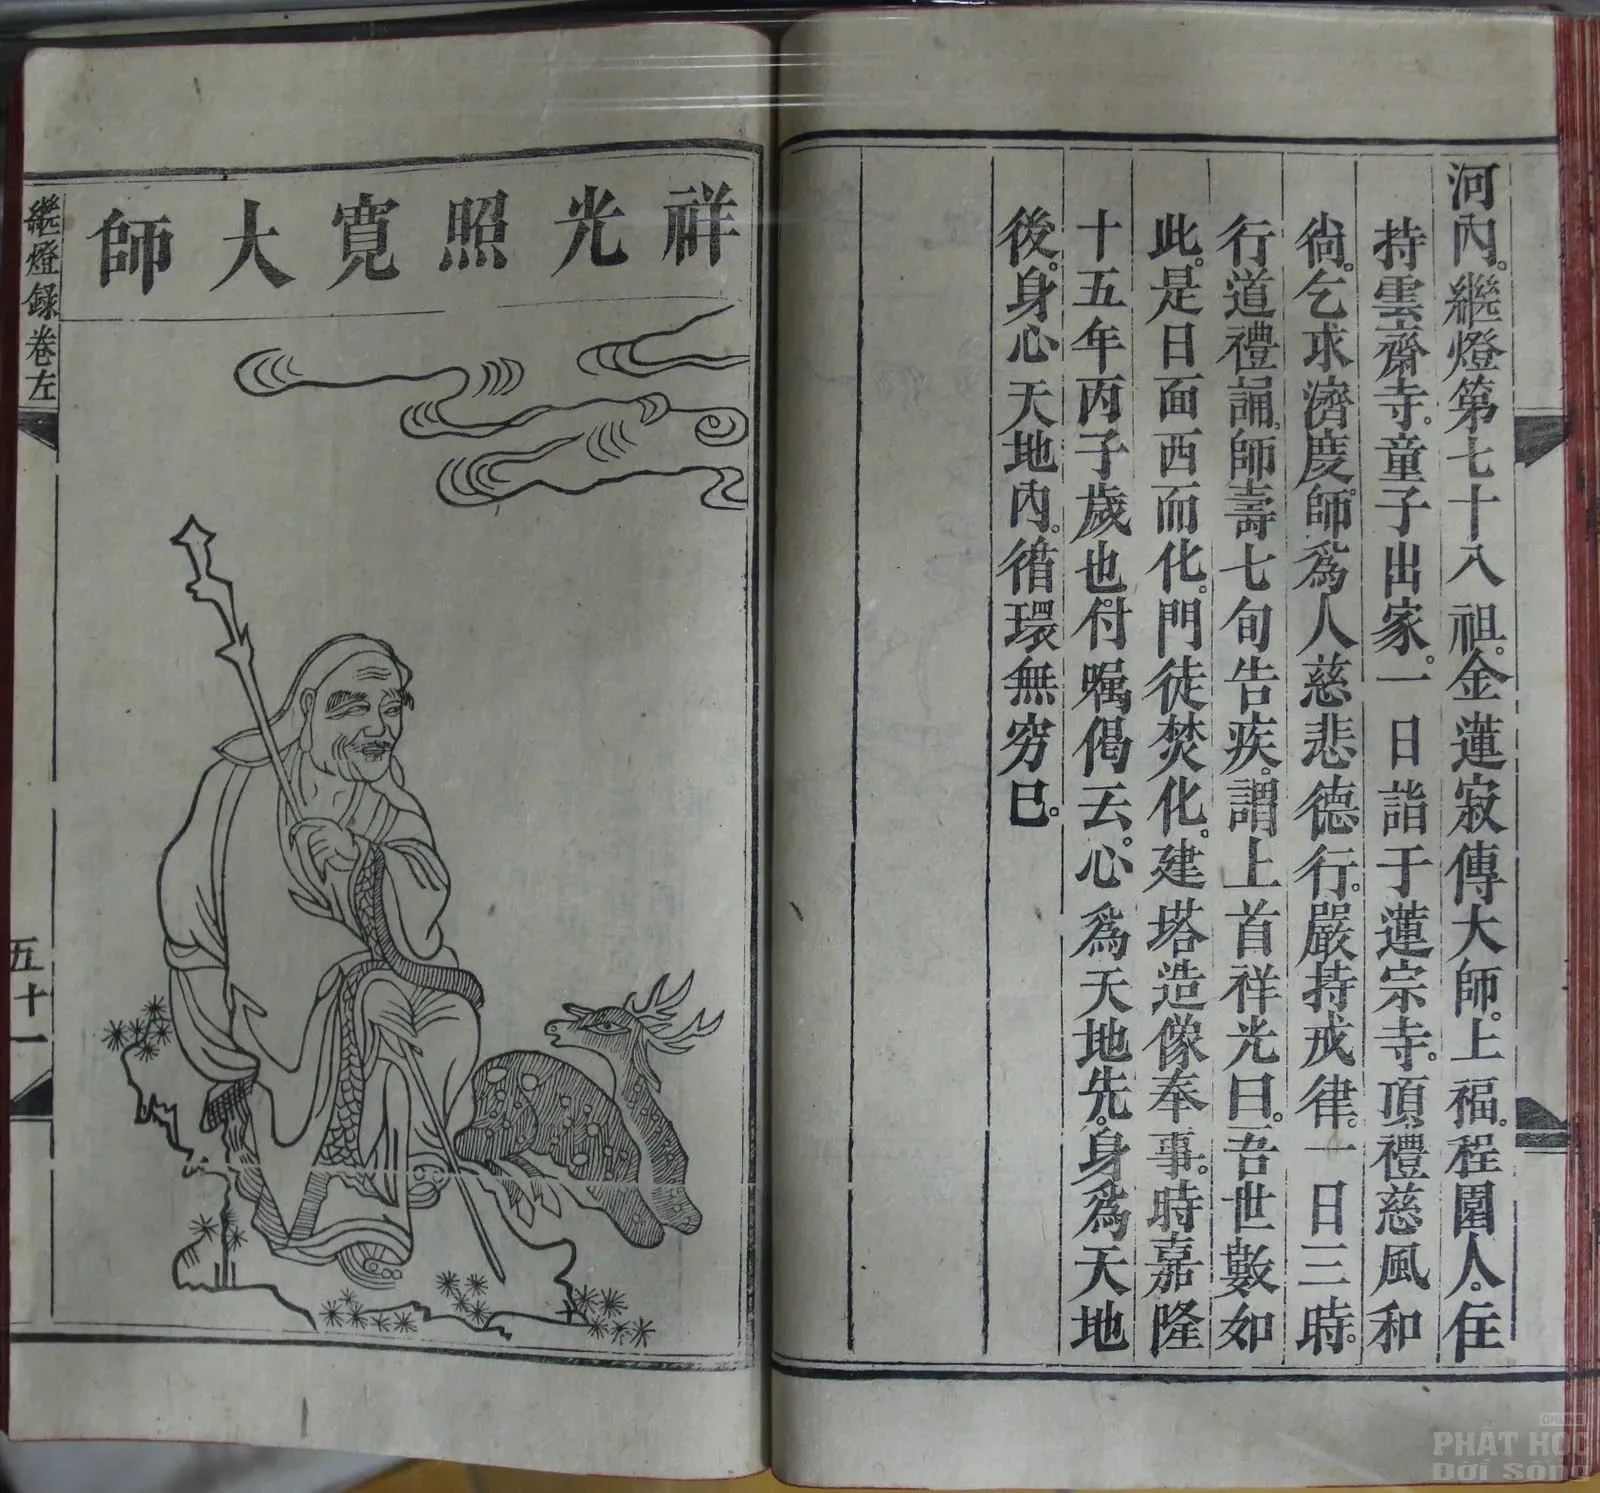 河內。繼燈第七十八祖。金蓮寂傳大師。上福。程圍人。住
持雲齋寺。童子出家。一日詣于蓮宗寺。頂禮慈風和
尙。乞求濟度。師爲人慈悲德行。嚴持戒律。一日三時。
行道禮誦。師壽七旬告疾。謂上首祥光曰。吾世數如
此。是日面西而化。門徒焚化。建塔造像奉事。時嘉隆
十五年丙子歲也。付嘱偈云。心爲天地先。身爲天地
後。身心天地內。循環無穷已。
祥光照寬大師
繼燈録卷左
五十一
ONLINE
PHẬT HỌC
Đời Sống